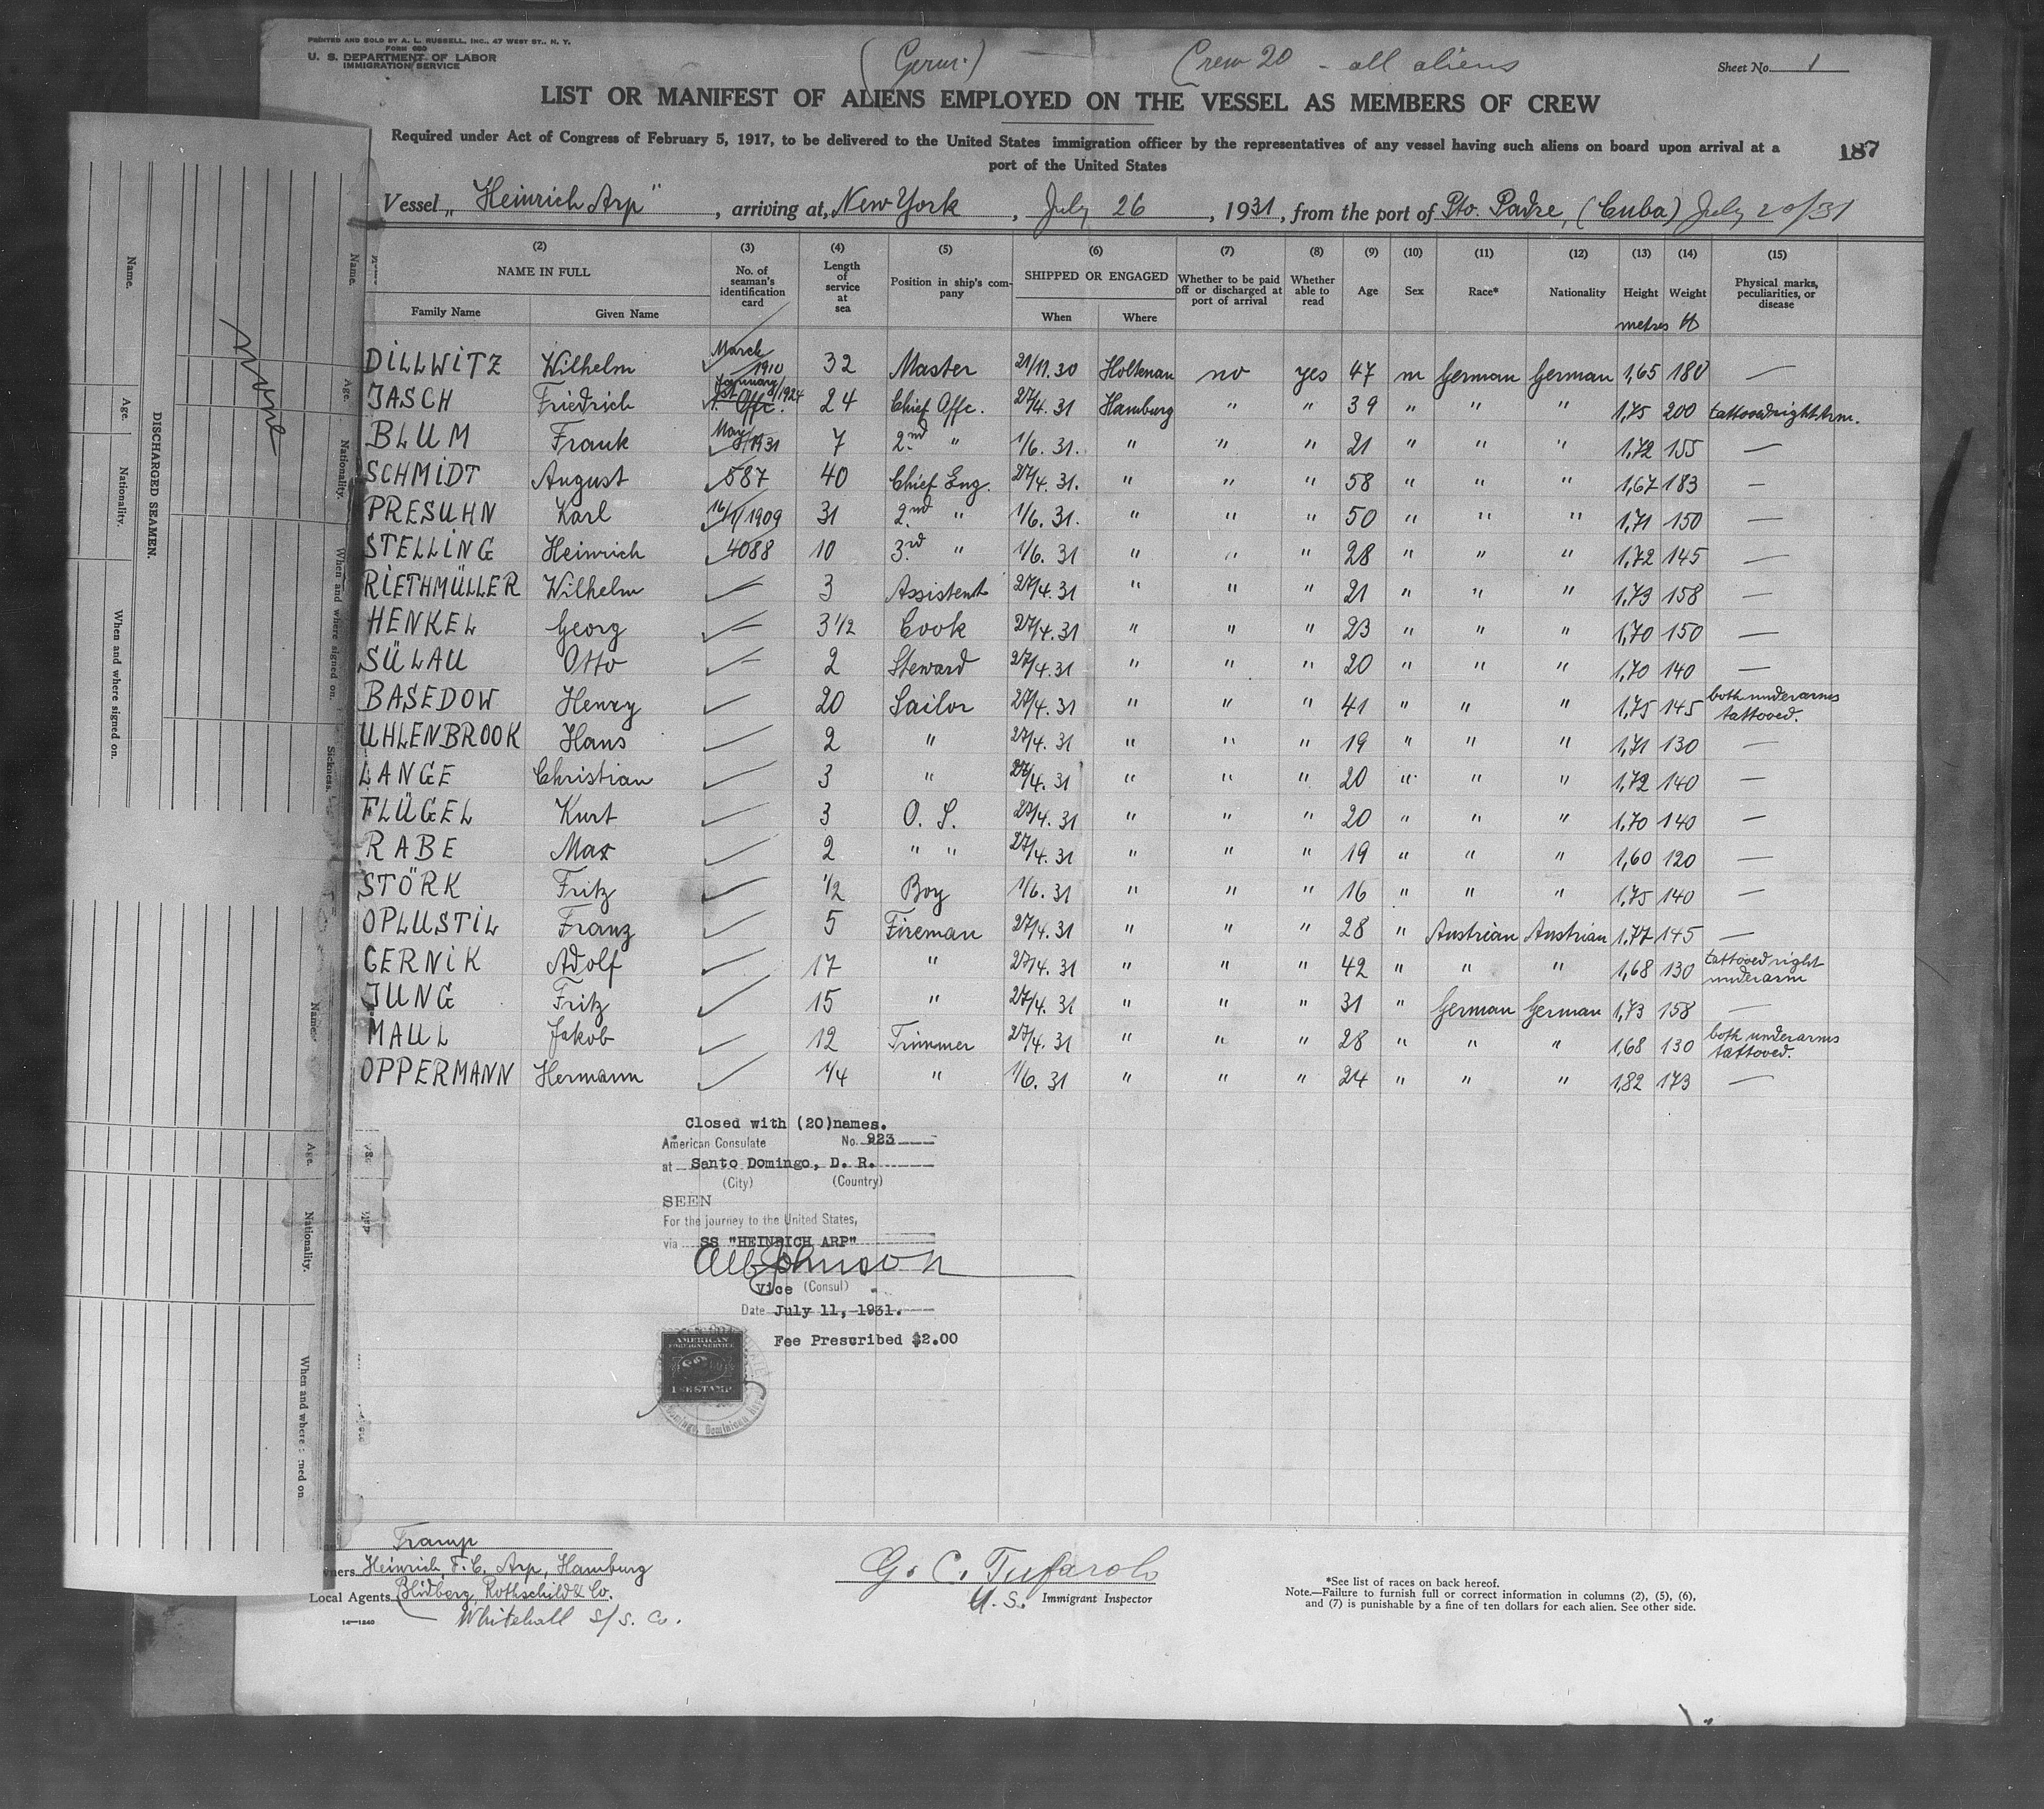 PRINTED AND SOLD BY A. L. RUSSELL, INC., 47 WEST ST., N. Y.
FORM 680
U. S. DEPARTMENT OF LABOR
IMMIGRATION SERVICE
(Germ.)
Crew 20 - all aliens
Sheet No. 1
LIST OR MANIFEST OF ALIENS EMPLOYED ON THE VESSEL AS MEMBERS OF CREW
Required under Act of Congress of February 5, 1917, to be delivered to the United States immigration officer by the representatives of any vessel having such aliens on board upon arrival at a
port of the United States
187
Vessel „Heinrich Arp", arriving at, New York, July 26, 1931, from the port of Pto. Padre, (Cuba) July 20/31
(2) (3) (4) (5) (6) (7) (8) (9) (10) (11) (12) (13) (14) (15)
NAME IN FULL
Family Name Given Name
No. of seaman's identification card
Length of service at sea
Position in ship's company
SHIPPED OR ENGAGED
When Where
Whether to be paid off or discharged at port of arrival
Whether able to read
Age
Sex
Race*
Nationality
Height metres
Weight ℔
Physical marks, peculiarities, or disease
DILLWITZ Wilhelm March 1910 32 Master 21/11.30 Holtenau no yes 47 m German German 1,65 180 —
JASCH Friedrich January 8/1924 1. Offc. 24 Chief Offc. 27/4.31 Hamburg " " 39 " " " 1,75 200 tattooed right Arm.
BLUM Frank May 8/1931 7 2nd " 1/6.31. " " " 21 " " " 1,72 155 —
SCHMIDT August 587 40 Chief Eng. 27/4.31. " " " 58 " " " 1,67 183 —
PRESUHN Karl 16/11/1909 31 2nd " 1/6.31. " " " 50 " " " 1,71 150 —
STELLING Heinrich 4088 10 3rd " 1/6.31 " " " 28 " " " 1,72 145 —
RIETHMÜLLER Wilhelm — 3 Assistent 27/4.31 " " " 21 " " " 1,73 158 —
HENKEL Georg — 3 1/2 Cook 27/4.31 " " " 23 " " " 1,70 150 —
SÜLAU Otto — 2 Steward 27/4.31 " " " 20 " " " 1,70 140 —
BASEDOW Henry 20 Sailor 27/4.31 " " " 41 " " " 1,75 145 both underarms tattooed.
UHLENBROOK Hans 2 " 27/4.31 " " " 19 " " " 1,71 130 —
LANGE Christian 3 " 27/4.31 " " " 20 " " " 1,72 140 —
FLÜGEL Kurt 3 O. S. 27/4.31 " " " 20 " " " 1,70 140 —
RABE Max 2 " " 27/4.31 " " " 19 " " " 1,60 120 —
STÖRK Fritz 1/2 Boy 1/6.31 " " " 16 " " " 1,75 140 —
OPLUSTIL Franz 5 Fireman 27/4.31 " " " 28 " Austrian Austrian 1,77 145 —
CERNIK Adolf 17 " 27/4.31 " " " 42 " " " 1,68 130 tattooed right underarm
JUNG Fritz 15 " 27/4.31 " " " 31 " German German 1,73 158 —
MAUL Jakob 12 Trimmer 27/4.31 " " " 28 " " " 1,68 130 both underarms tattooed.
OPPERMANN Hermann 1/4 " 1/6.31 " " " 24 " " " 1,82 173 —
Closed with (20)names.
American Consulate No. 923
at Santo Domingo, D. R.
(City) (Country)
SEEN
For the journey to the United States,
via SS "HEINRICH ARP"
Vice (Consul)
Date July 11, 1931.
Fee Prescribed $2.00
AMERICAN
FOREIGN SERVICE
FEE STAMP
Tramp
Owners Heinrich F. C. Arp, Hamburg
Local Agents Blidberg, Rothschild & Co.
Whitehall S/S. Co.
14—1240
G. C. Tufarolo
U. S. Immigrant Inspector
*See list of races on back hereof.
Note.—Failure to furnish full or correct information in columns (2), (5), (6),
and (7) is punishable by a fine of ten dollars for each alien. See other side.
DISCHARGED SEAMEN.
Name. Age. Nationality. When and where signed on.
Name. Age. Nationality. When and where signed on. Sickness.
Name. Age. Nationality.
none